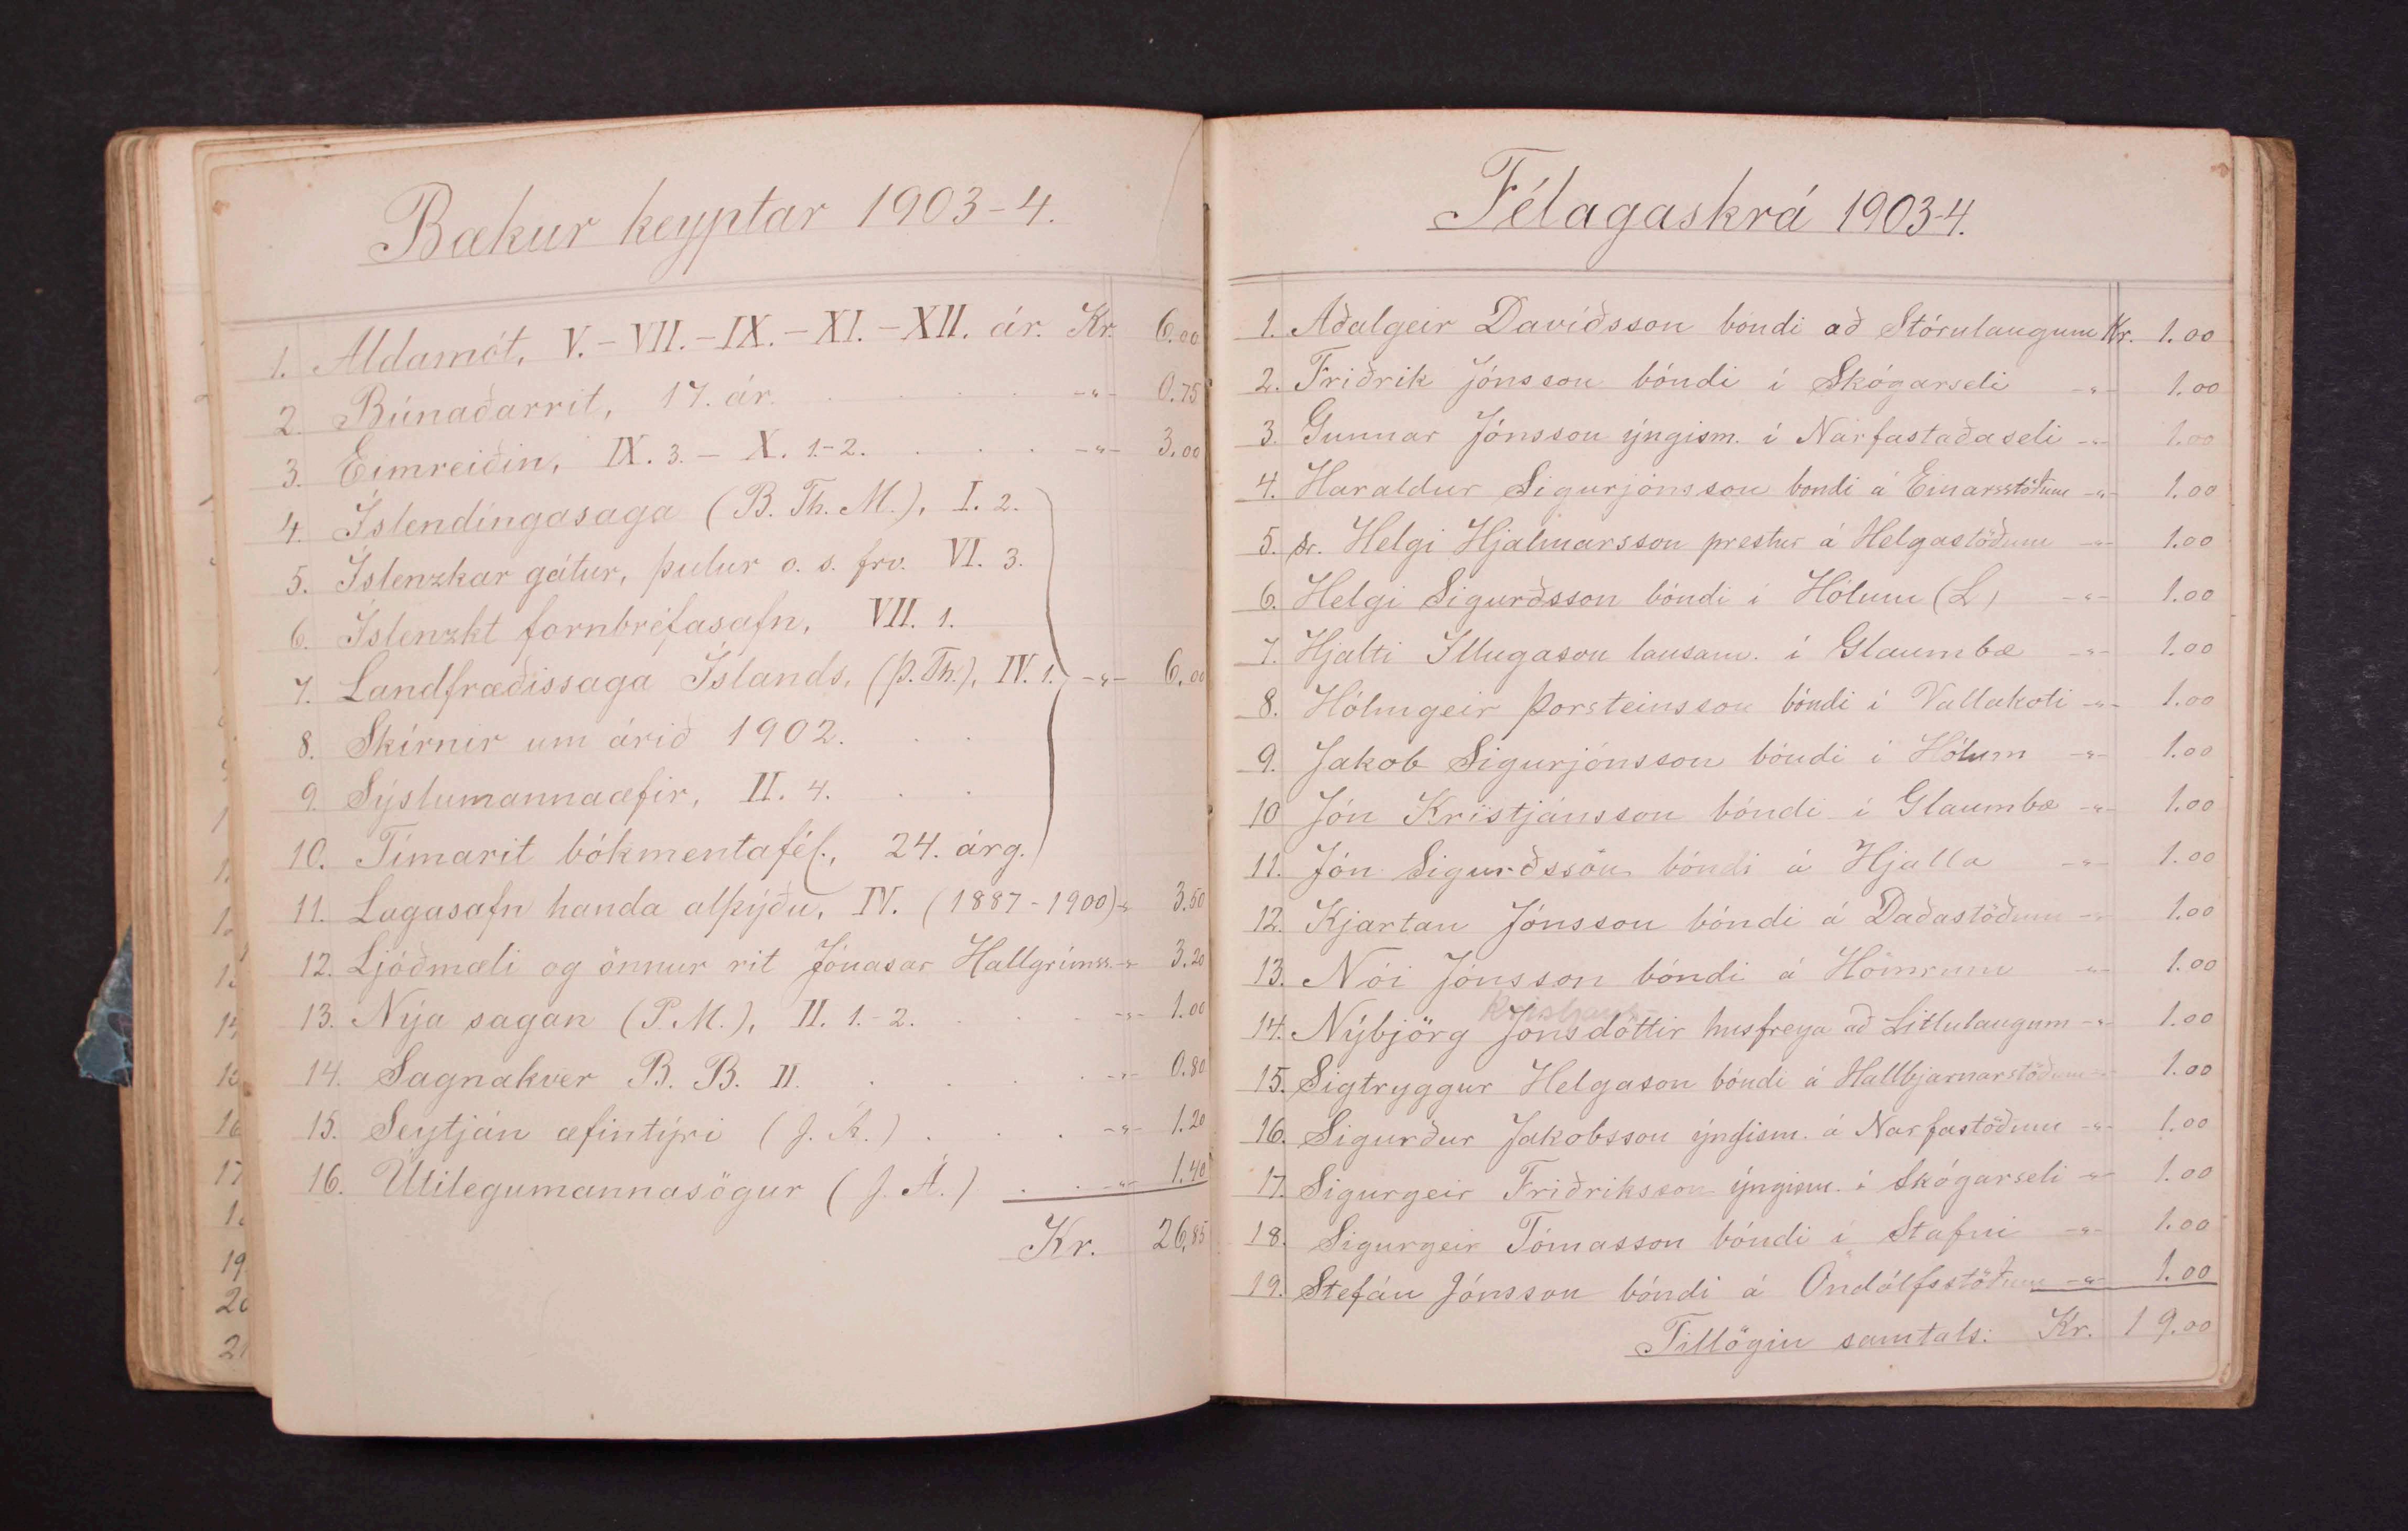 Bækur keyptar 1903-4.
1. Aldamót, V.-VII.-IX.-XI.-XII. ár. Kr. 6.00
2. Búnaðarrit, 17. ár. . . . . . -"- 0.75
3. Eimreiðin, IX. 3. - X. 1.-2. . . . -"- 3.00
4. Íslendingasaga (B. Th. M.), I. 2.
5. Íslenzkar gátur, þulur o. s. frv. VI. 3.
6. Íslenzkt fornbréfasafn, VII. 1.
7. Landfræðissaga Íslands, (Þ. Th.), IV. 1. -"- 6.00
8. Skírnir um árið 1902. . .
9. Sýslumannaæfir, II. 4. . .
10. Tímarit bókmentafél., 24. árg.
11. Lagasafn handa alþýðu, IV. (1887-1900) -"- 3.50
12. Ljóðmæli og önnur rit Jónasar Hallgrímss. -"- 3.20
13. Nýja sagan (P. M.), II. 1.-2. . . . -"- 1.00
14. Sagnakver B. B. II. . . . . -"- 0.80
15. Seytján æfintýri (J. Á.) . . . -"- 1.20
16. Útilegumannasögur (J. Á.) . . -"- 1.40
Kr. 26,85
Félagaskrá 1903-4.
1. Aðalgeir Davíðsson bóndi að Stórulaugum Kr. 1.00
2. Friðrik Jónsson bóndi í Skógarseli -"- 1.00
3. Gunnar Jónsson ýngism. í Narfastaðaseli -"- 1.00
4. Haraldur Sigurjónsson bóndi á Einarsstöðum -"- 1.00
5. sr. Helgi Hjálmarsson prestur á Helgastöðum -"- 1.00
6. Helgi Sigurðsson bóndi í Hólum (L) -"- 1.00
7. Hjalti Illugason lausam. í Glaumbæ -"- 1.00
8. Hólmgeir Þorsteinsson bóndi í Vallakoti -"- 1.00
9. Jakob Sigurjónsson bóndi í Hólum -"- 1.00
10 Jón Kristjánsson bóndi í Glaumbæ -"- 1.00
11. Jón Sigurðsson bóndi á Hjalla -"- 1.00
12. Kjartan Jónsson bóndi á Daðastöðum -"- 1.00
13. Nói Jónsson bóndi á Hömrum -"- 1.00
Kristjáns
14. Nýbjörg Jónsdóttir húsfreya að Litlulaugum -"- 1.00
15. Sigtryggur Helgason bóndi á Hallbjarnarstöðum -"- 1.00
16. Sigurður Jakobsson ýngism. á Narfastöðum -"- 1.00
17. Sigurgeir Friðriksson ýngism. í Skógarseli -"- 1.00
18. Sigurgeir Tómasson bóndi í Stafni -"- 1.00
19. Stefán Jónsson bóndi á Öndólfsstöðum -"- 1.00
Tillögin samtals: Kr. 19.00